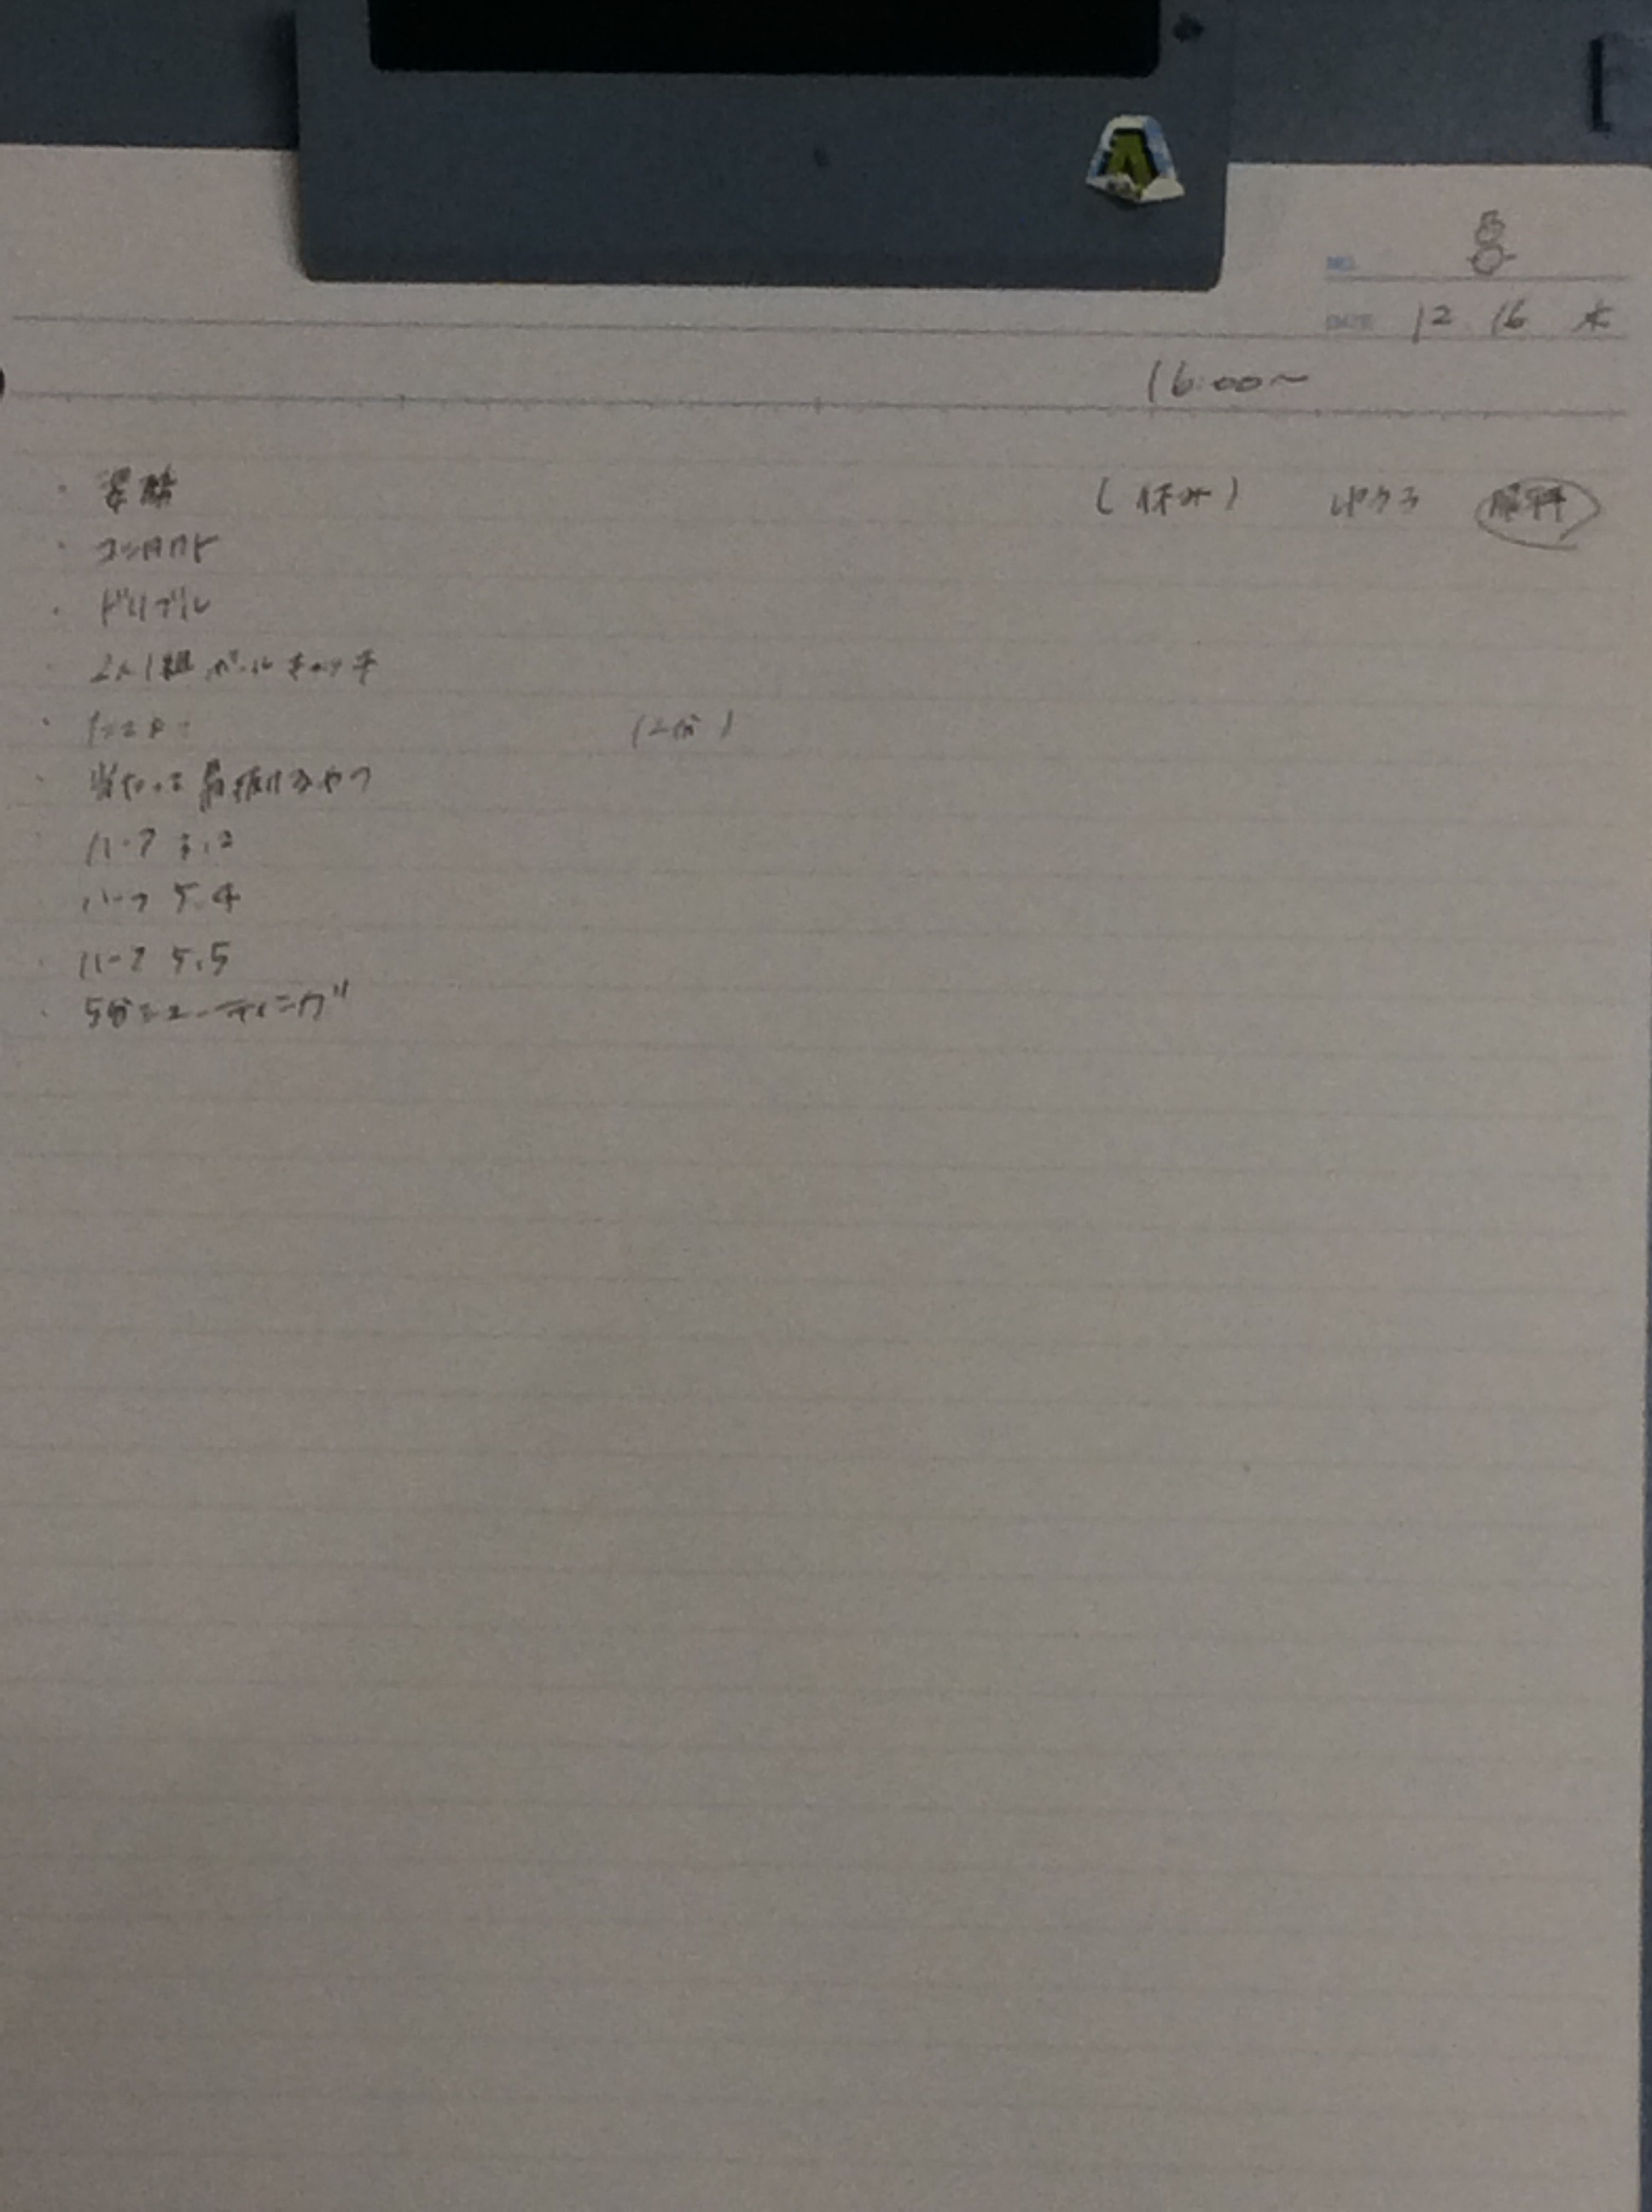 NO.
DATE 12 16 木
16:00〜
・姿勢 (休み) ゆうう 眼科
・コンタクト
・ドリブル
・2人1組 ボールキャッチ
・ (2分)
・当たって肩抜けるやつ
・ハーフ 3.2
・ハーフ 5.4
・ハーフ 5.5
・5分シューティング